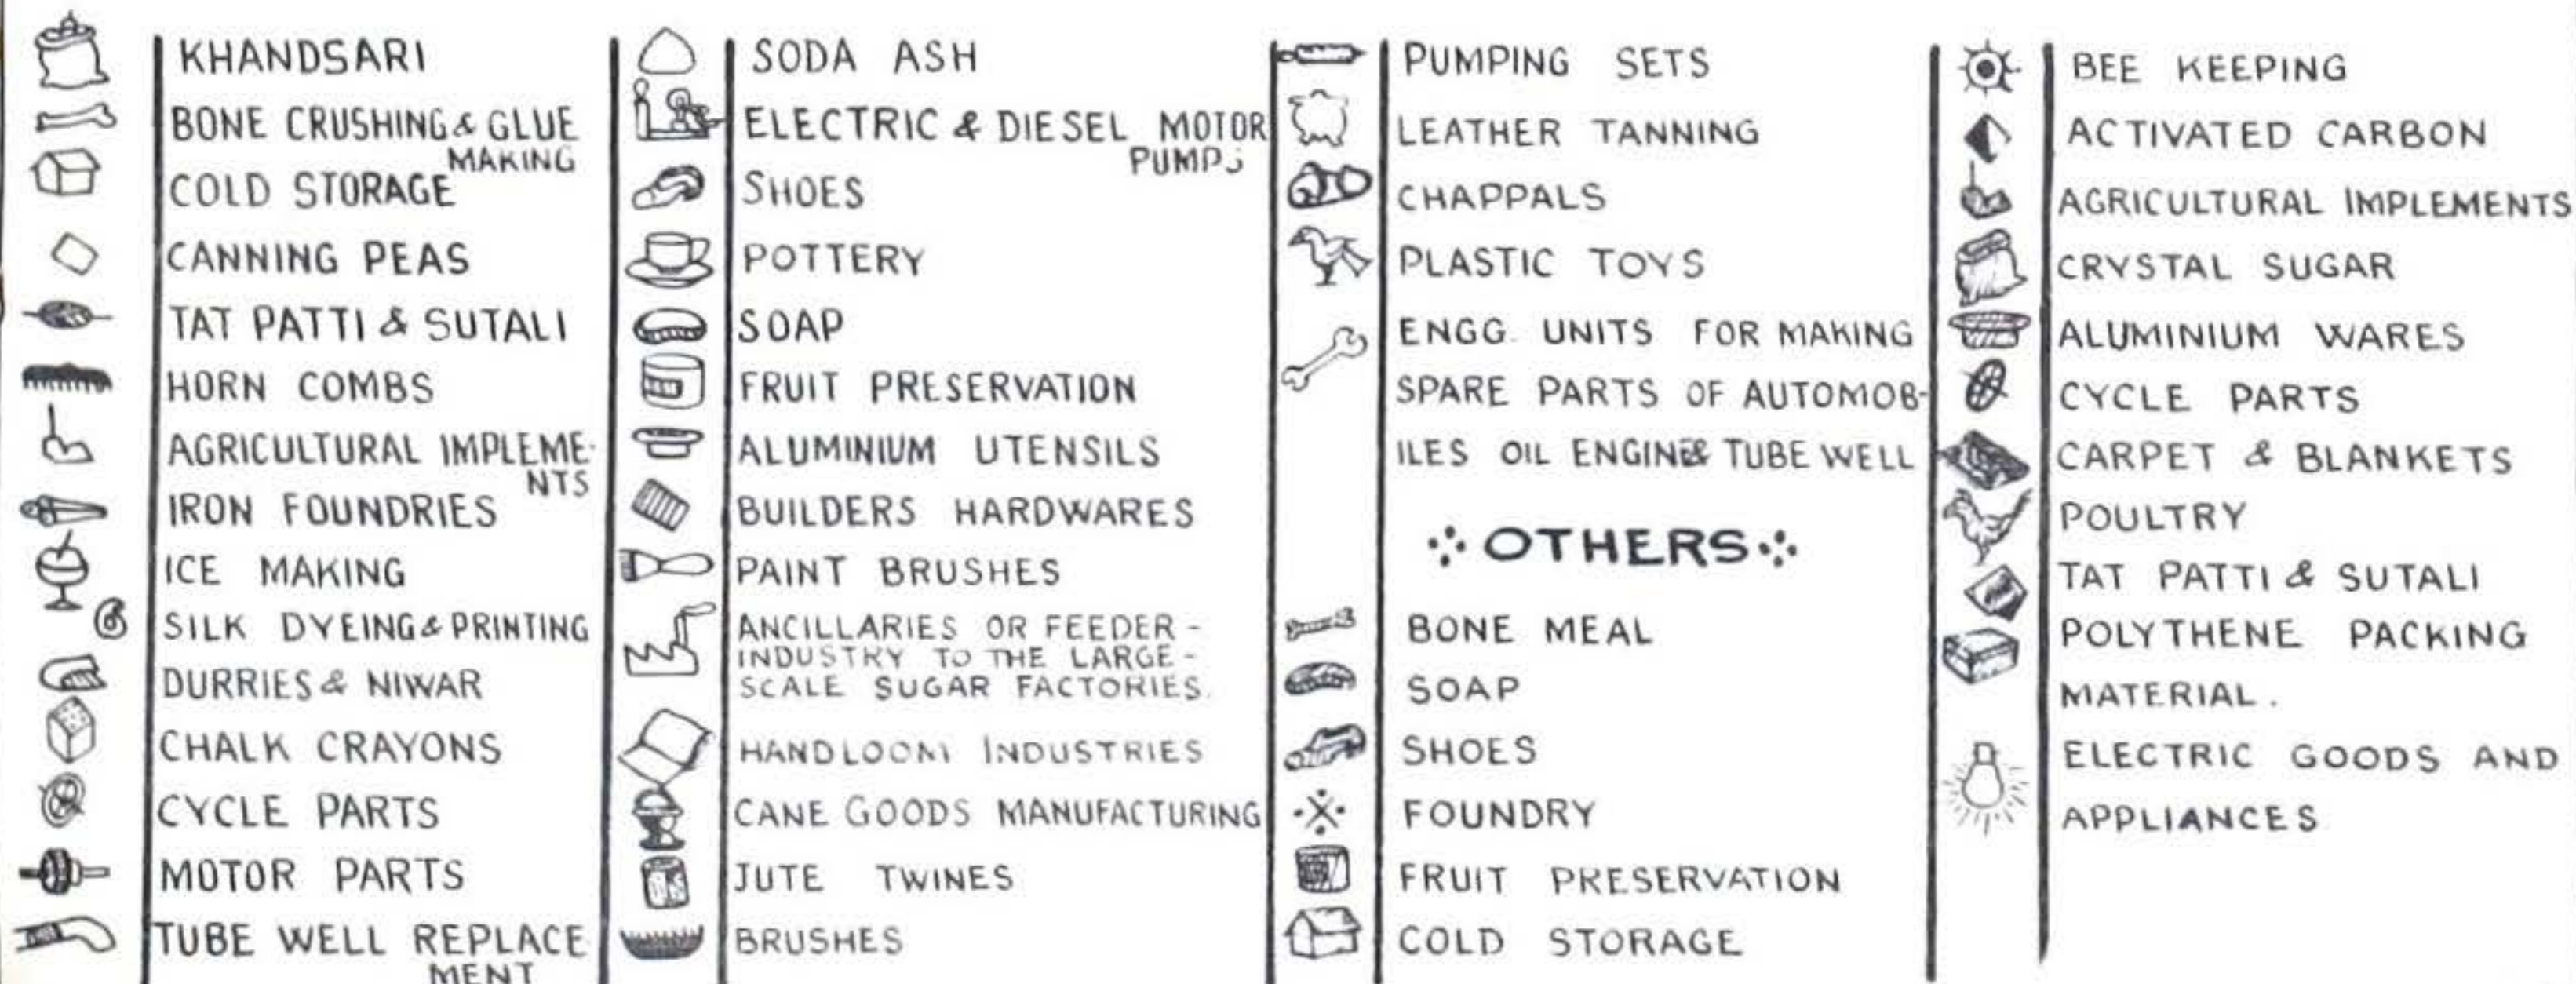 KHANDSARI
BONE CRUSHING & GLUE
MAKING
COLD STORAGE
CANNING PEAS
TAT PATTI & SUTALI
HORN COMBS
AGRICULTURAL IMPLEME-
NTS
IRON FOUNDRIES
ICE MAKING
SILK DYEING & PRINTING
DURRIES & NIWAR
CHALK CRAYONS
CYCLE PARTS
MOTOR PARTS
TUBE WELL REPLACE
MENT
SODA ASH
ELECTRIC & DIESEL MOTOR
PUMPS
SHOES
POTTERY
SOAP
FRUIT PRESERVATION
ALUMINIUM UTENSILS
BUILDERS HARDWARES
PAINT BRUSHES
ANCILLARIES OR FEEDER-
INDUSTRY TO THE LARGE-
SCALE SUGAR FACTORIES.
HANDLOOM INDUSTRIES
CANE GOODS MANUFACTURING
JUTE TWINES
BRUSHES
PUMPING SETS
LEATHER TANNING
CHAPPALS
PLASTIC TOYS
ENGG. UNITS FOR MAKING
SPARE PARTS OF AUTOMOB-
ILES OIL ENGINE & TUBE WELL
OTHERS
BONE MEAL
SOAP
SHOES
FOUNDRY
FRUIT PRESERVATION
COLD STORAGE
BEE KEEPING
ACTIVATED CARBON
AGRICULTURAL IMPLEMENTS
CRYSTAL SUGAR
ALUMINIUM WARES
CYCLE PARTS
CARPET & BLANKETS
POULTRY
TAT PATTI & SUTALI
POLYTHENE PACKING
MATERIAL.
ELECTRIC GOODS AND
APPLIANCES